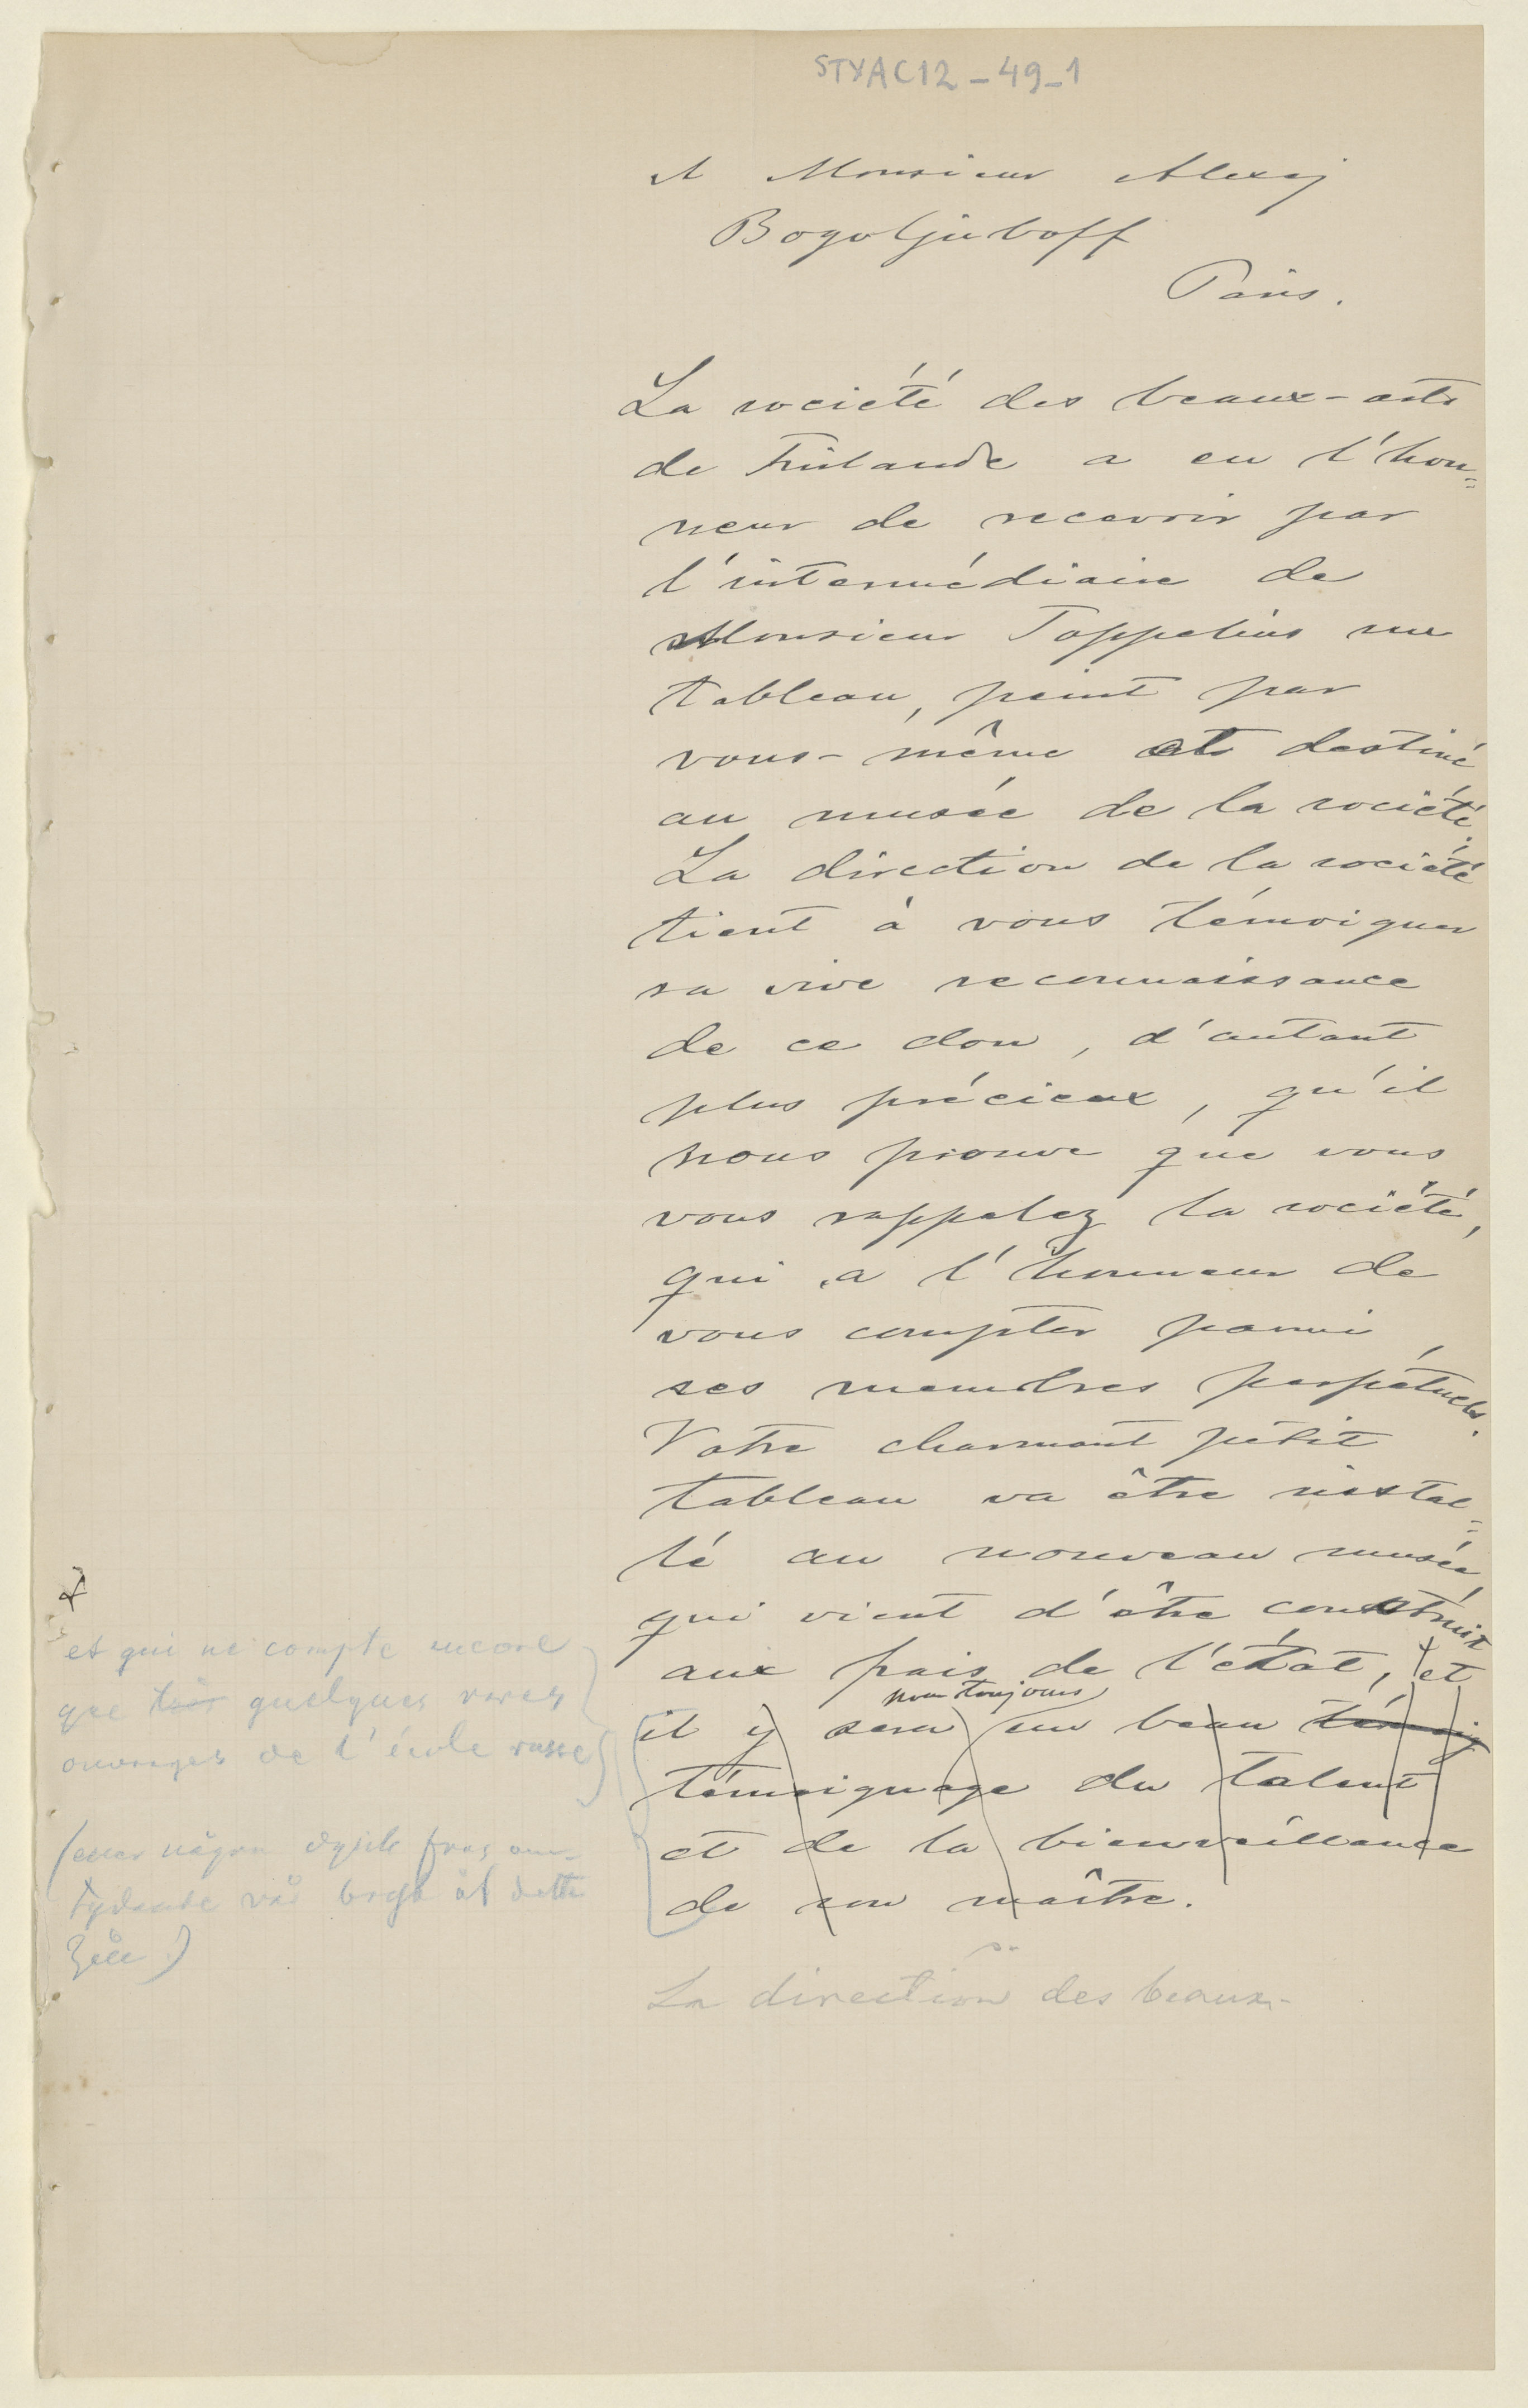 STYAC12-49-1
A Monsieur Alexej
Bogoljuboff
Paris.
La société des beaux-arts
de Finlande a eu l'hon=
neur de recevoir par
l'intermédiaire de
Monsieur Toppelius un
tableau, peint par
vous-même et destiné
au musée de la société.
La direction de la société
tient à vous témoigner
sa vive reconnaissance
de ce don, d'autant
plus précieux, qu'il
nous prouve que vous
vous rappelez la société,
qui a l'honneur de
vous compter parmi
ses membres perpétuels.
Votre charmant pétit
tableau va être instal=
lé au nouveau musée
qui vient d'être construit
aux frais de l'état, et
toujours
il y sera un beau témoig
témoignage du talent
et de la bienveillance
de son maître.
La direction des beaux-
et qui ne compte encore
que quelques rares
ouvrages de l'école russe
(eller någon dylik fras om
tydande vår brist åt detta
håll)